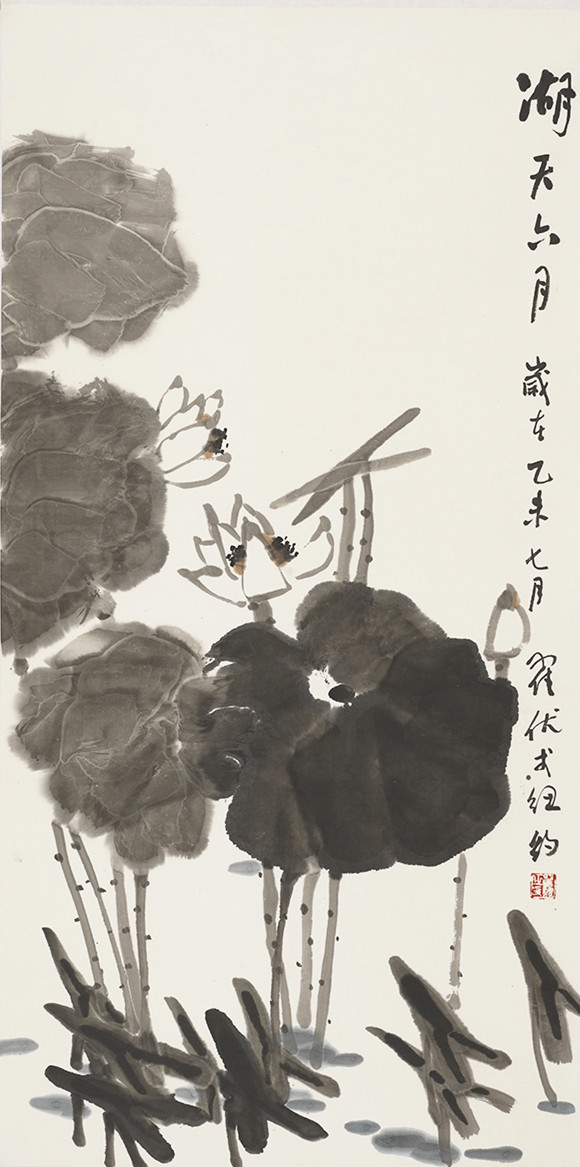 湖天六月 歲在乙未七月 翟優 于紐約